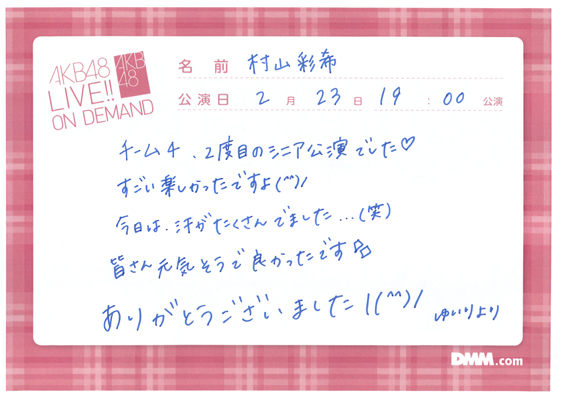 AKB48
LIVE!!
ON DEMAND
AKB
48
名前 村山彩希
公演日 2月23日 19:00公演
チーム4、2度目のシニア公演でした♡
すごい楽しかったですよ(^^)/
今日は、汗がたくさんでました…(笑)
皆さん元気そうで良かったです
ありがとうございました!(^^)/
ゆいりより
DMM.com